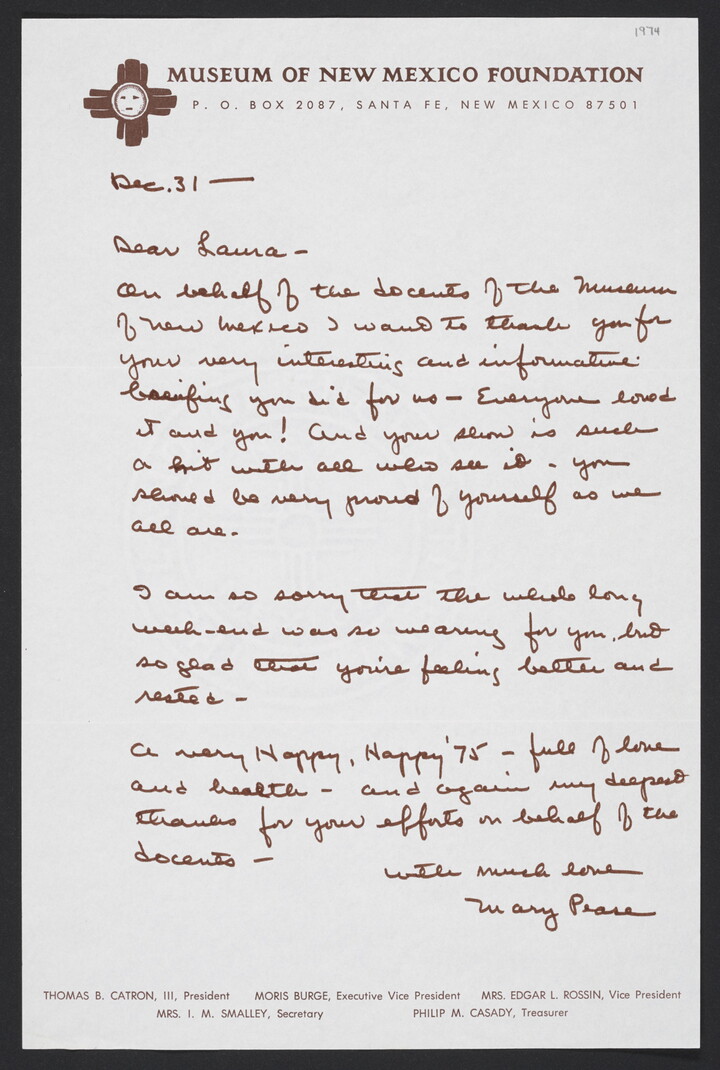 1974
MUSEUM OF NEW MEXICO FOUNDATION
P. O. BOX 2087, SANTA FE, NEW MEXICO 87501
Dec. 31 —
Dear Laura —
On behalf of the docents of the Museum
of New Mexico I want to thank you for
your very interesting and informative
briefing you did for us — Everyone loved
it and you! And your show is such
a hit with all who see it - you
should be very proud of yourself as we
all are.
I am so sorry that the whole long
week-end was so wearing for you, but
so glad that you're feeling better and
rested —
A very Happy, Happy '75 — full of love
and health — and again my deepest
thanks for your efforts on behalf of the
docents —
with much love
Mary Pease
THOMAS B. CATRON, III, President MORIS BURGE, Executive Vice President MRS. EDGAR L. ROSSIN, Vice President
MRS. I. M. SMALLEY, Secretary PHILIP M. CASADY, Treasurer